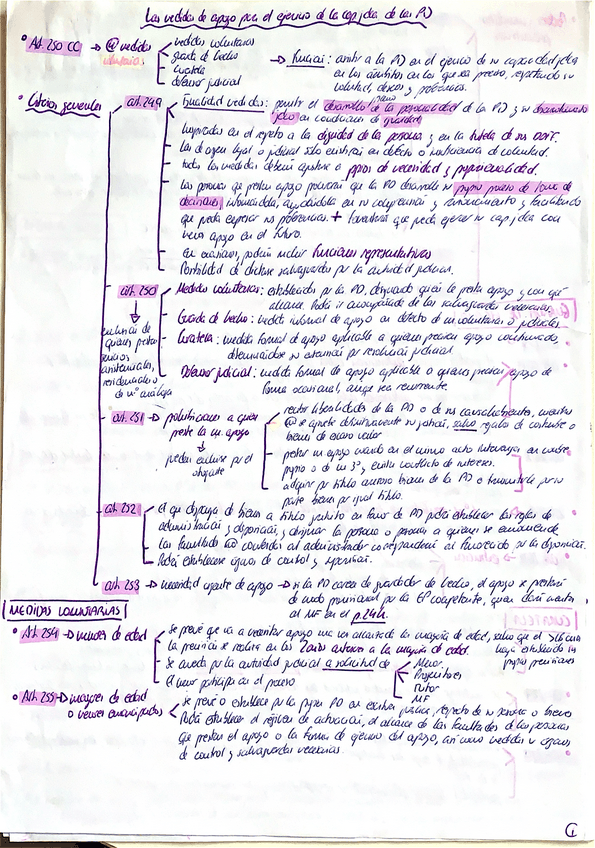 Las medidas de apoyo para el ejercicio de la cap. jdca. de las PD
Art. 250 CC → medidas
voluntarias
medidas voluntarias
guarda de hecho
curatela
defensor judicial
→ Función: asistir a la PD en el ejercicio de su capacidad jdca
en los ámbitos en los que sea preciso, respetando su
voluntad, deseos y preferencias.
art. 249
Finalidad medidas: permitir el desarrollo de la personalidad de la PD y su desenvolvimiento
jdco en condiciones de igualdad
Inspiradas en el respeto a la dignidad de la persona y en la tutela de sus DDFF.
Las de origen legal o judicial solo existirán en defecto o insuficiencia de voluntad.
todas las medidas deberán ajustarse a ppios de necesidad y proporcionalidad.
Las personas que prestan apoyo procurarán que la PD desarrolle su propio proceso de toma de
decisiones, informándola, ayudándola en su comprensión y razonamiento y facilitando
que pueda expresar sus preferencias. + Fomentarán que pueda ejercer su cap. jdca con
menos apoyo en el futuro.
En ocasiones, podrán incluir funciones representativas
Posibilidad de dictarse salvaguardas por la autoridad judicial.
art. 250
exclusión de
quienes presten
servicios
asistenciales,
residenciales o
de nª análoga
Medidas voluntarias: establecidas por la PD, designando quién le presta apoyo y con qué
alcance. Podrá ir acompañada de las salvaguardas necesarias.
Guarda de hecho: medida informal de apoyo en defecto de m. voluntarias o judiciales.
Curatela: medida formal de apoyo aplicable a quienes precisen apoyo continuado,
determinándose su extensión por resolución judicial.
Defensor judicial: medida formal de apoyo aplicable a quienes precisen apoyo de
forma ocasional, aunque sea recurrente.
art. 251 → prohibiciones a quien
preste la m. apoyo
↓
pueden excluirse por el
otorgante
recibir liberalidades de la PD o de sus causahabientes, mientras
@ se apruebe definitivamente su gestión, salvo regalos de costumbre o
bienes de escaso valor
prestar m. apoyo cuando en el mismo acto intervenga en nombre
propio o de un 3º, y exista conflicto de intereses.
adquirir por título oneroso bienes de la PD o transmitirle por su
parte bienes por igual título.
art. 252
El que disponga de bienes a título gratuito en favor de PD podrá establecer las reglas de
administración y disposición, y designar la persona o personas a quienes se encomiende
Las facultades no conferidas al administrador corresponderán al favorecido por la disposición.
Podrá establecerse órganos de control y supervisión.
art. 253 → necesidad urgente de apoyo → si la PD carece de guardador de hecho, el apoyo se prestará
de modo provisional por la EP competente, quien dará cuenta
al MF en el p. 24h.
MEDIDAS VOLUNTARIAS
Art. 254 → menores de edad
Se prevé que va a necesitar apoyo una vez alcance de la mayoría de edad, salvo que el >16 años
haya establecido sus
propias previsiones
La previsión se realiza en los 2 años anteriores a la mayoría de edad.
Se acuerda por la autoridad judicial a solicitud de
Menor.
Progenitores
Tutor
MF
El menor participa en el proceso
Art. 255 → mayores de edad
o menores emancipados
Se prevé o establece por la propia PD en escritura pública, respecto de su persona o bienes
Podrá establecer el régimen de actuación, el alcance de las facultades de las personas
que prestan el apoyo o la forma de ejercicio del apoyo, así como medidas u órganos
de control y salvaguardas necesarias.